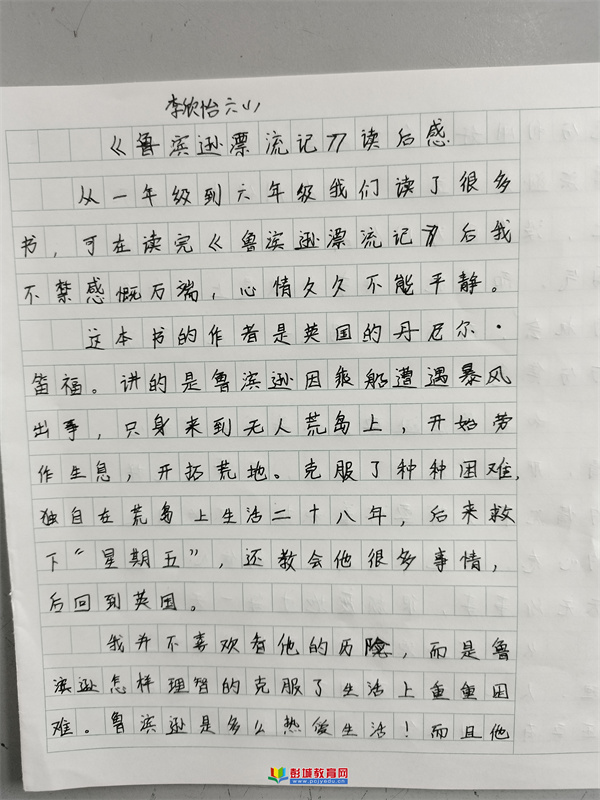 李欣怡六(1)
《鲁滨逊漂流记》读后感
从一年级到六年级我们读了很多
书,可在读完《鲁滨逊漂流记》后我
不禁感慨万端,心情久久不能平静。
这本书的作者是英国的丹尼尔·
笛福。讲的是鲁滨逊因乘船遭遇暴风
出事,只身来到无人荒岛上,开始劳
作生息,开拓荒地。克服了种种困难,
独自在荒岛上生活二十八年,后来救
下“星期五”,还教会他很多事情,
后回到英国。
我并不喜欢看他的历险,而是鲁
滨逊怎样理智的克服了生活上重重困
难。鲁滨逊是多么热爱生活!而且他
彭城教育网
www.pcjyedu.cn